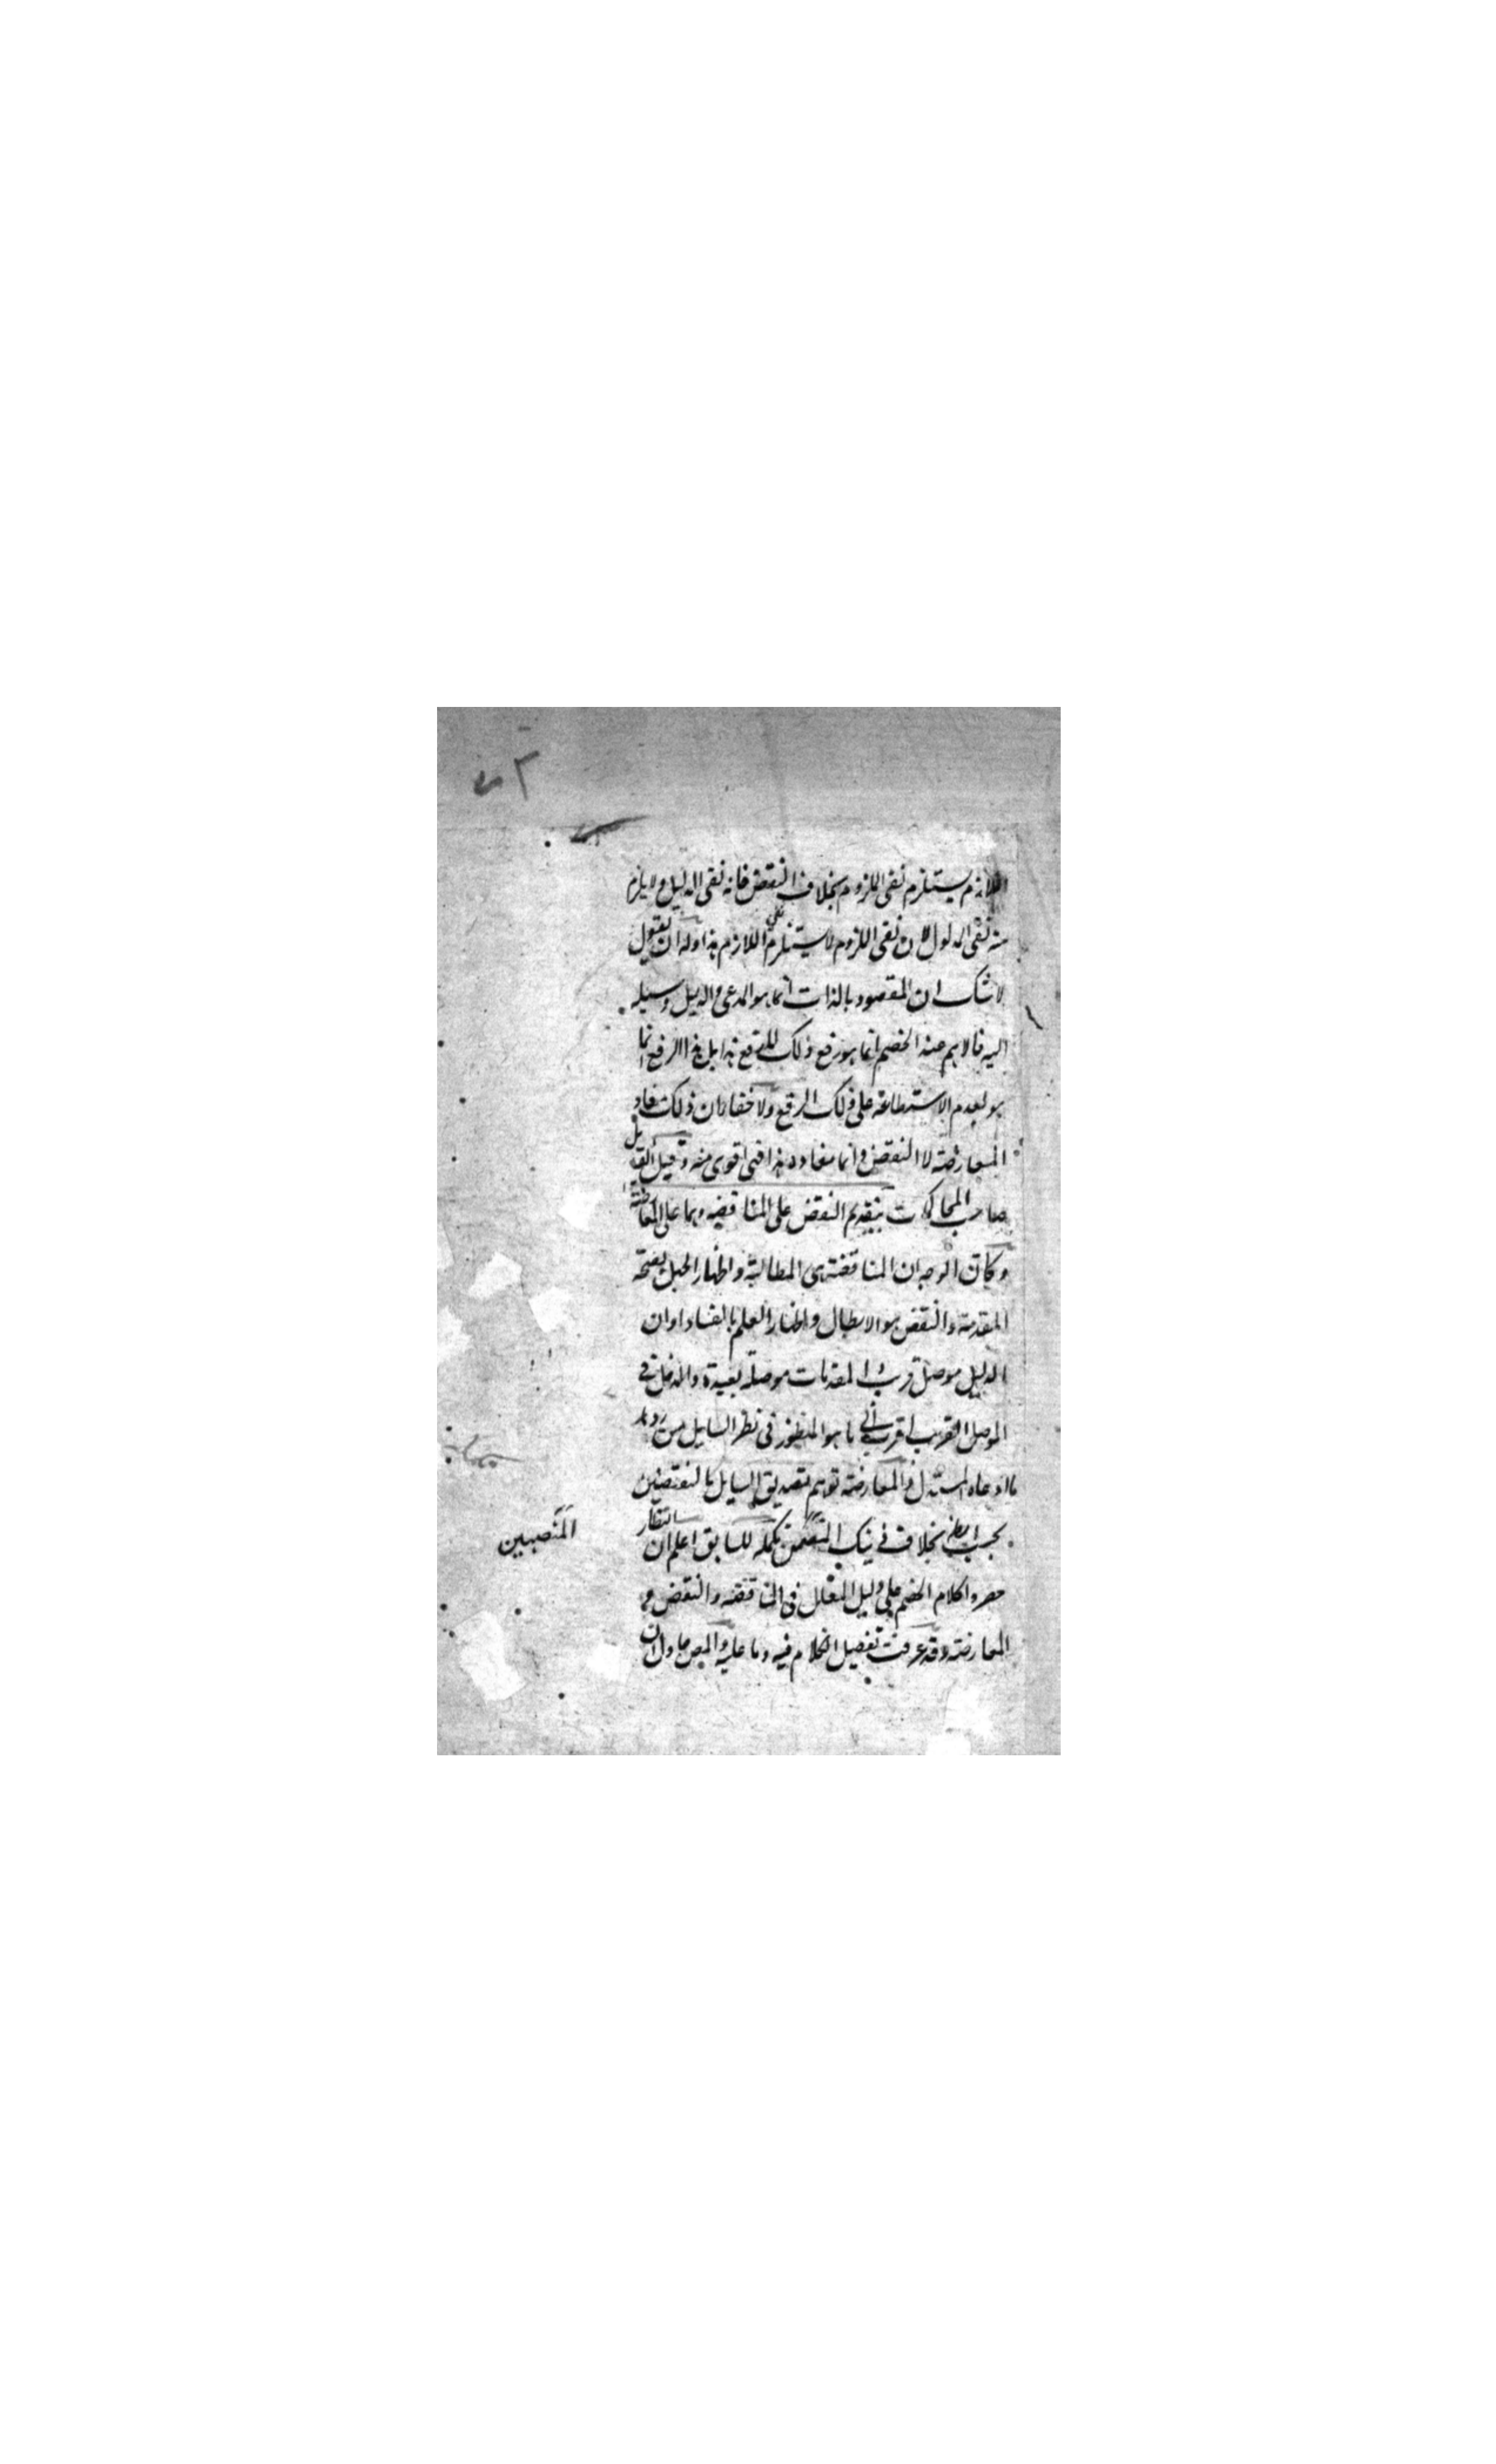 اللازم يستلزم نفى الملزوم بخلاف النقض فانه نفى الدليل ولا يلزم
منه نفى المدلول لان نفى الملزوم لا يستلزم نفى اللازم هذا وله ان يقول
لا شك ان المقصود بالذات انما هو المدعى والدليل وسيلة
اليه فالاهم عند الخصم انما هو رفع ذلك لا رفع هذا بل هذا الرفع انما
هو لعدم الاستطاعة على ذلك الرفع ولا خفاء ان ذلك مفاد
المعارضة لا النقض وانما مفاده هذا فهى اقوى منه وقيل القائل
صاحب المحاكمات بتقديم النقض على المناقضة وهما على المعارضة
وكان الوجه ان المناقضة هى المطالبة واظهار الجهل بصحة
المقدمة والنقض هو الابطال واظهار العلم بالفساد او ان
الدليل موصل قريب والمقدمات موصلة بعيدة والدخل فى
الموصل القريب اقرب الى ما هو المنظور فى نظر السايل من رد
ما ادعاه المستدل والمعارضة توهم تصديق السايل بالنقيضين
بحسب بخلاف ذينك تكملة للسابق اعلم ان النظار
المنصبين
حصروا كلام الخصم على دليل المعلل فى المناقضة والنقض و
المعارضة وقد عرفت تفصيل الكلام فيه وما عليه والمص حاول ان